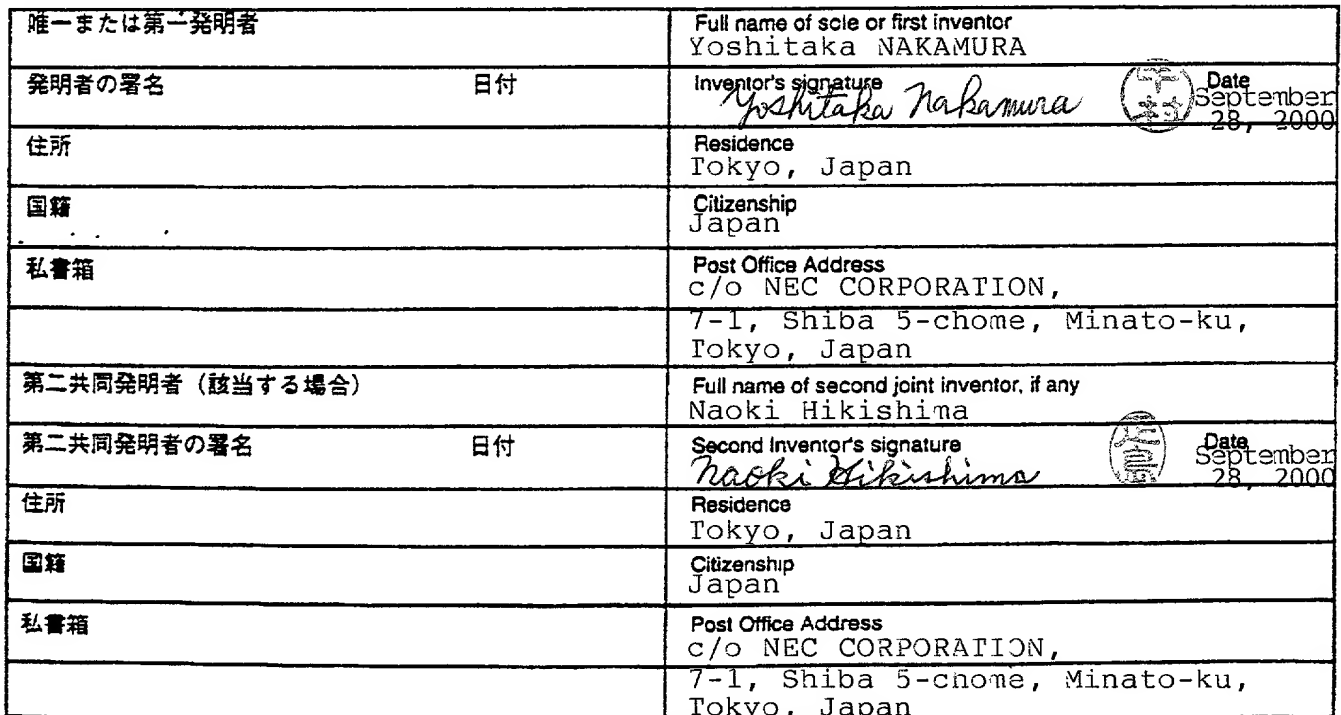 唯一または第一発明者
Full name of sole or first inventor
Yoshitaka NAKAMURA
発明者の署名 日付
Inventor's signature Date
Yoshitaka Nakamura September
28, 2000
住所
Residence
Tokyo, Japan
国籍
Citizenship
Japan
私書箱
Post Office Address
c/o NEC CORPORATION,
7-1, Shiba 5-chome, Minato-ku,
Tokyo, Japan
第二共同発明者（該当する場合）
Full name of second joint inventor, if any
Naoki Hikishima
第二共同発明者の署名 日付
Second Inventor's signature Date
Naoki Hikishima September
28, 2000
住所
Residence
Tokyo, Japan
国籍
Citizenship
Japan
私書箱
Post Office Address
c/o NEC CORPORATION,
7-1, Shiba 5-chome, Minato-ku,
Tokyo, Japan